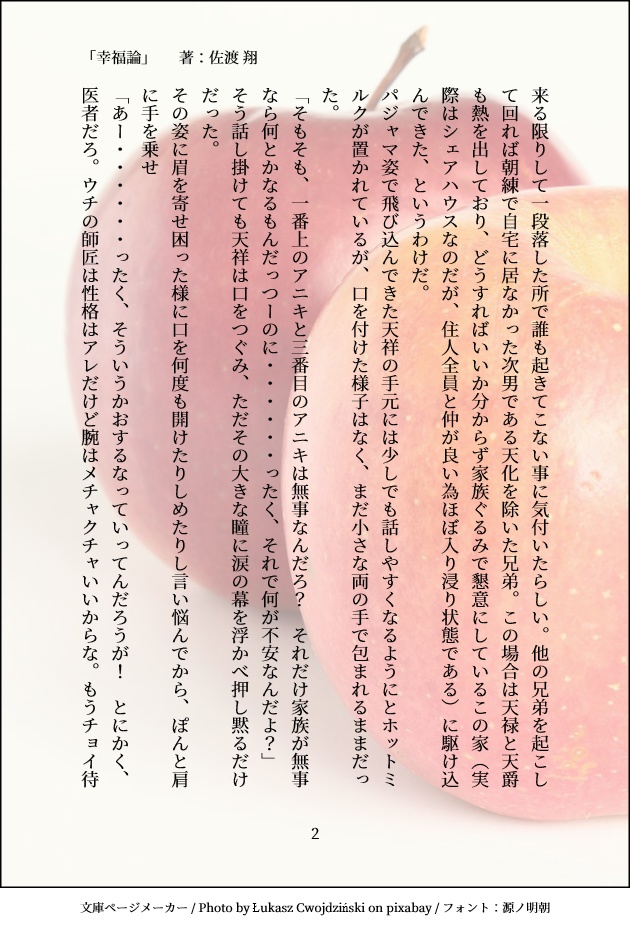 「幸福論」　著：佐渡 翔
来る限りして一段落した所で誰も起きてこない事に気付いたらしい。他の兄弟を起こし
て回れば朝練で自宅に居なかった次男である天化を除いた兄弟。この場合は天禄と天爵
も熱を出しており、どうすればいいか分からず家族ぐるみで懇意にしているこの家（実
際はシェアハウスなのだが、住人全員と仲が良い為ほぼ入り浸り状態である）に駆け込
んできた、というわけだ。
パジャマ姿で飛び込んできた天祥の手元には少しでも話しやすくなるようにとホットミ
ルクが置かれているが、口を付けた様子はなく、まだ小さな両の手で包まれるままだっ
た。
「そもそも、一番上のアニキと三番目のアニキは無事なんだろ？　それだけ家族が無事
なら何とかなるもんだっつーのに・・・・・・ったく、それで何が不安なんだよ？」
そう話し掛けても天祥は口をつぐみ、ただその大きな瞳に涙の幕を浮かべ押し黙るだけ
だった。
その姿に眉を寄せ困った様に口を何度も開けたりしめたりし言い悩んでから、ぽんと肩
に手を乗せ
「あー・・・・・・ったく、そういうかおするなっていってんだろうが！　とにかく、
医者だろ。ウチの師匠は性格はアレだけど腕はメチャクチャいいからな。もうチョイ待
2
文庫ページメーカー / Photo by Łukasz Cwojdziński on pixabay / フォント：源ノ明朝